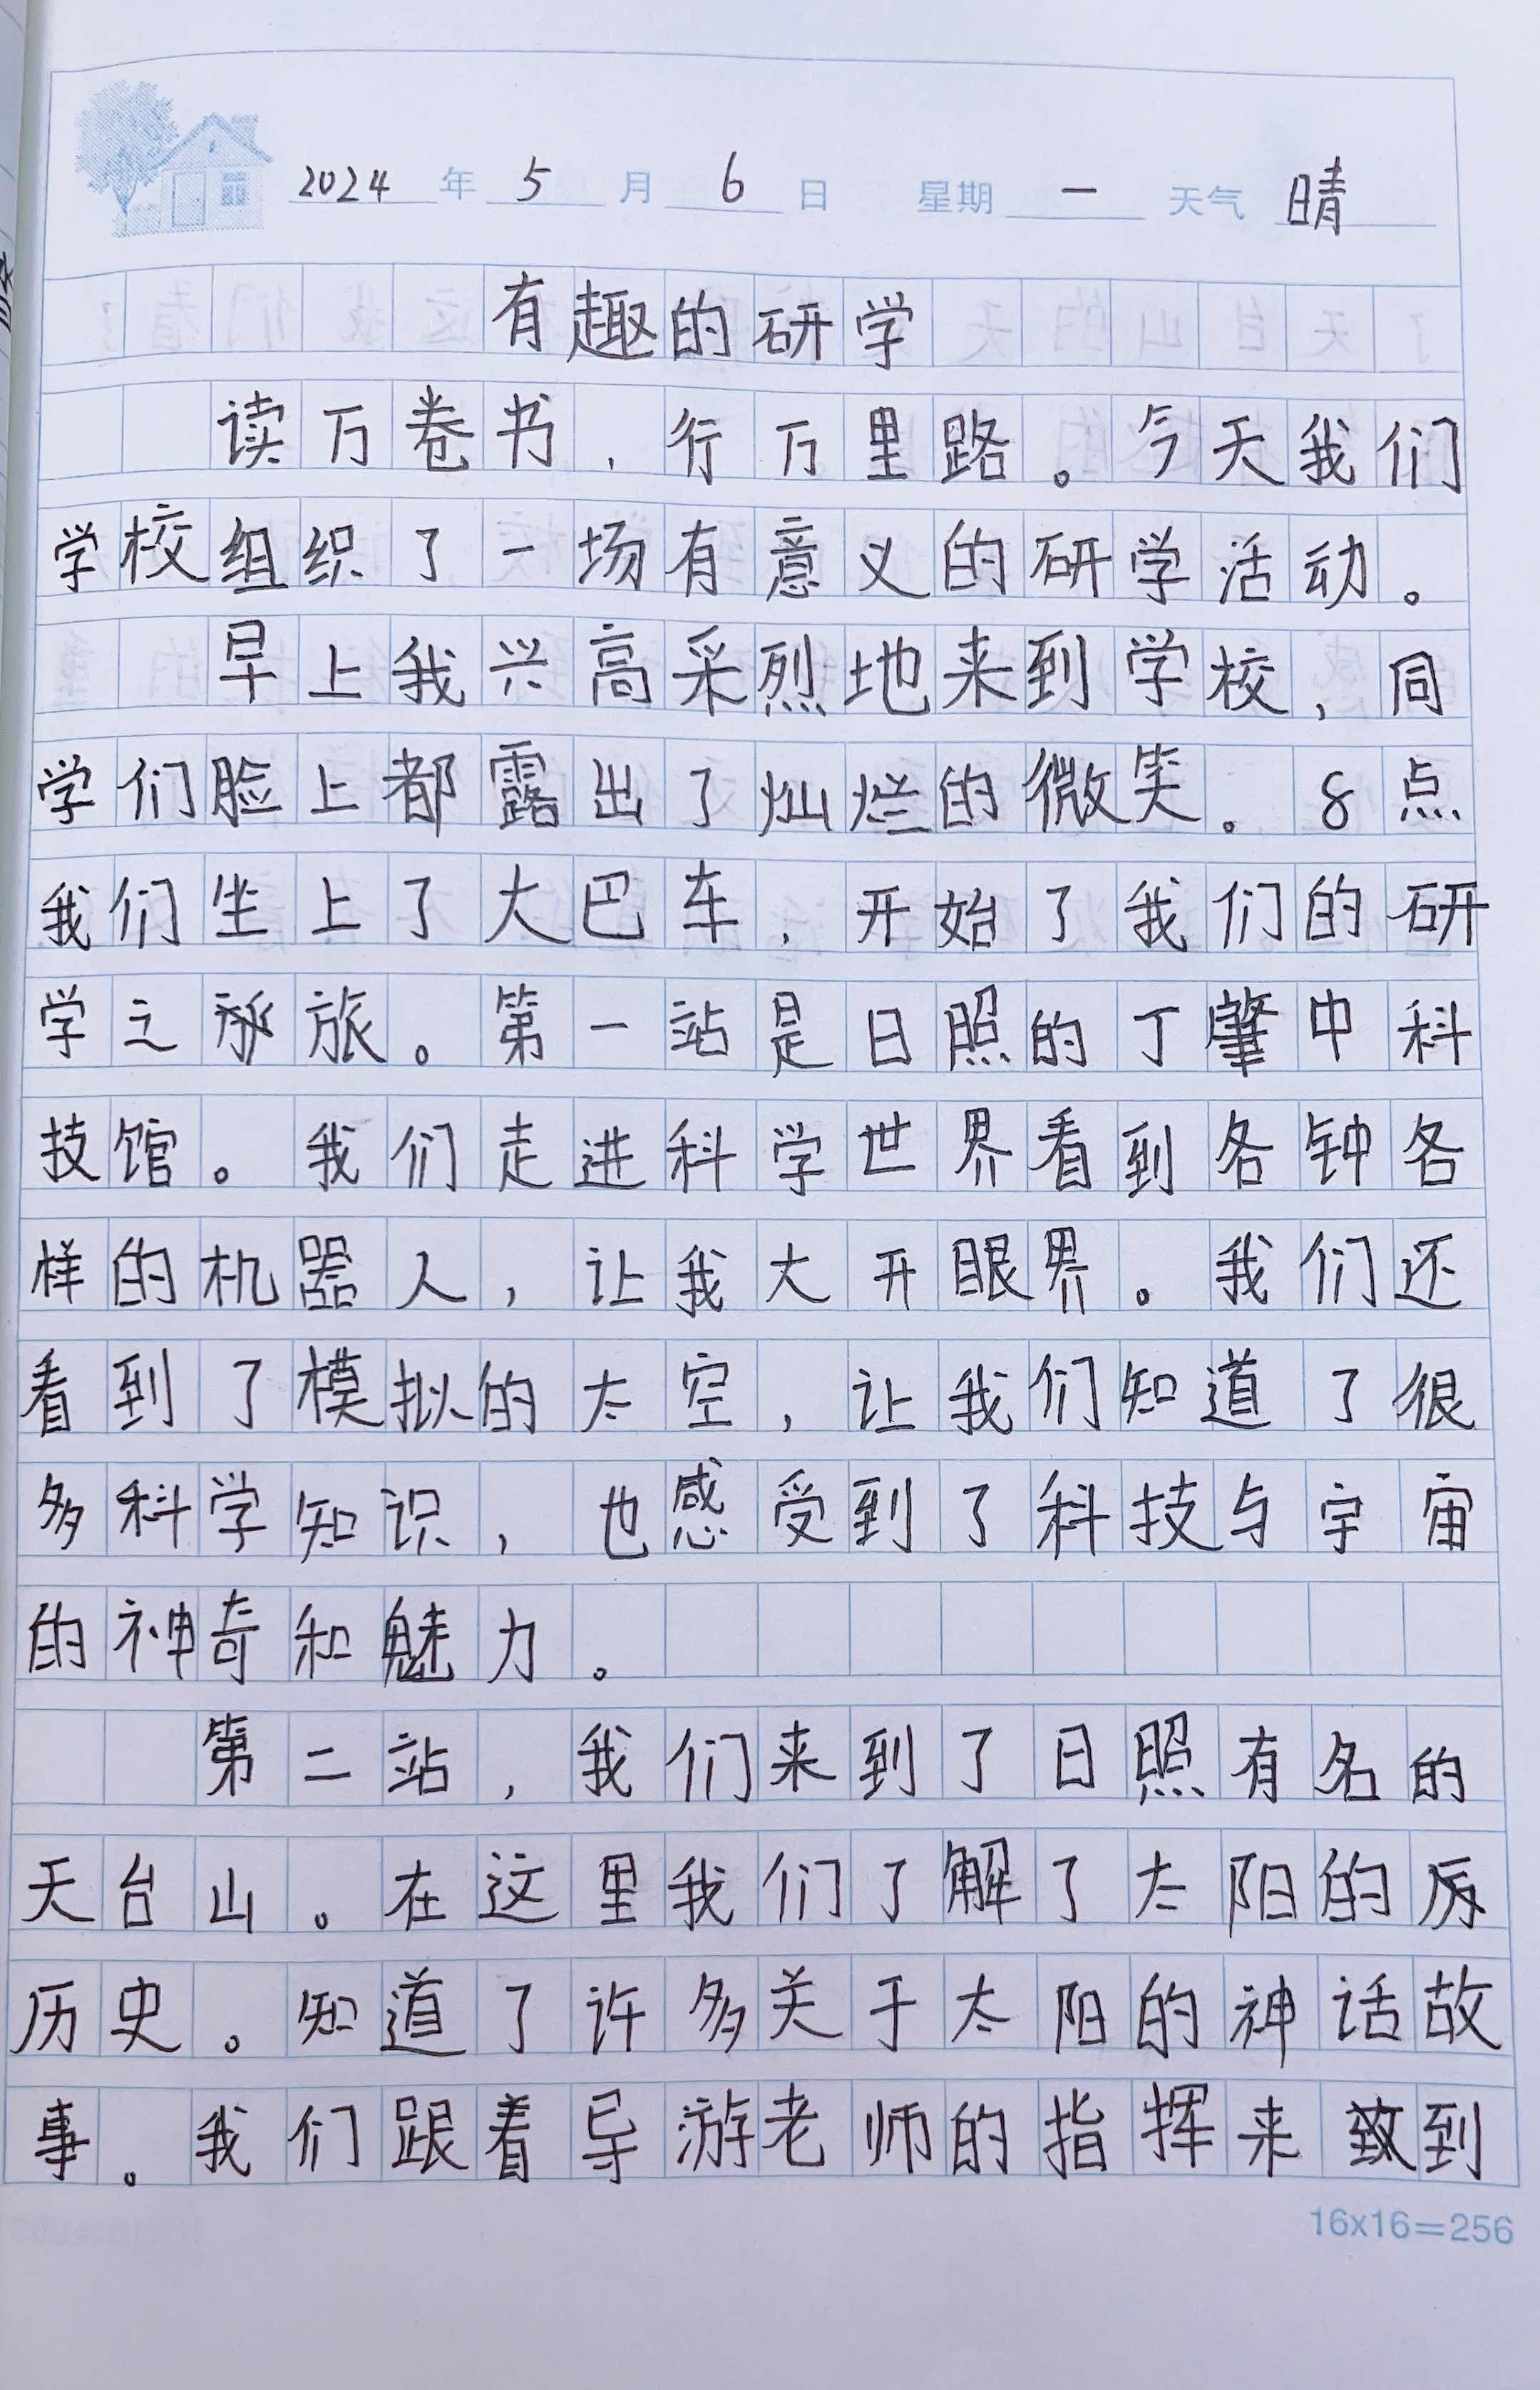 2024年5月6日 星期一 天气 晴
有趣的研学
读万卷书，行万里路。今天我们
学校组织了一场有意义的研学活动。
早上我兴高采烈地来到学校，同
学们脸上都露出了灿烂的微笑。8点
我们坐上了大巴车，开始了我们的研
学之旅。第一站是日照的丁肇中科
技馆。我们走进科学世界看到各钟各
样的机器人，让我大开眼界。我们还
看到了模拟的太空，让我们知道了很
多科学知识，也感受到了科技与宇宙
的神奇和魅力。
第二站，我们来到了日照有名的
天台山。在这里我们了解了太阳的
历史。知道了许多关于太阳的神话故
事。我们跟着导游老师的指挥来到
16x16=256